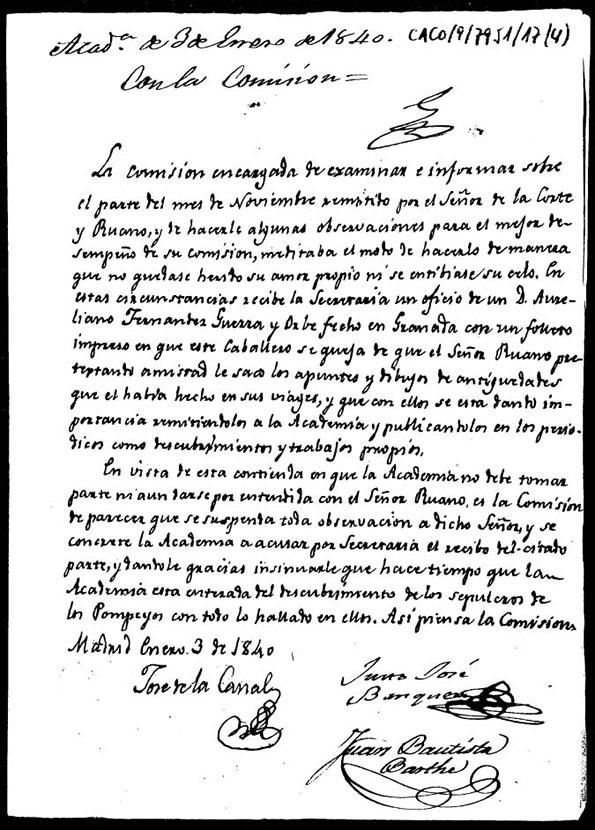 Acad.ª de 3 de Enero de 1840. CACO/9/7951/17(4)
Con la Comision =
La Comision encargada de examinar e informar sobre
el parte del mes de Noviembre remitido por el Señor de la Corte
y Ruano, y de hacerle algunas observaciones para el mejor de-
sempeño de su comision, meditaba el modo de hacerlo de manera
que no quedase herido su amor propio ni se entibiase su celo. En
estas circunstancias recibe la Secretaria un oficio de un D. Aure-
liano Fernandez Guerra y Orbe fecho en Granada con un folleto
impreso en que este Caballero se queja de que el Señor Ruano pre-
textando amistad le saco los apuntes y dibujos de antiguedades
que el habia hecho en sus viages, y que con ellos se esta dando im-
portancia remitiendolos a la Academia y publicandolos en los perio-
dicos como descubrimientos y trabajos propios.
En vista de esta contienda en que la Academia no debe tomar
parte ni aun darse por entendida con el Señor Ruano, es la Comision
de parecer que se suspenda toda observacion a dicho Señor, y se
concrete la Academia a acusar por Secretaria el recibo del citado
parte, y dandole gracias insinuarle que hace tiempo que la
Academia esta enterada del descubrimiento de los sepulcros de
los Pompeyos con todo lo hallado en ellos. Asi piensa la Comision
Madrid Enero. 3 de 1840
Jose de la Canal
Juan José
Barquera
Juan Bautista
Barthe